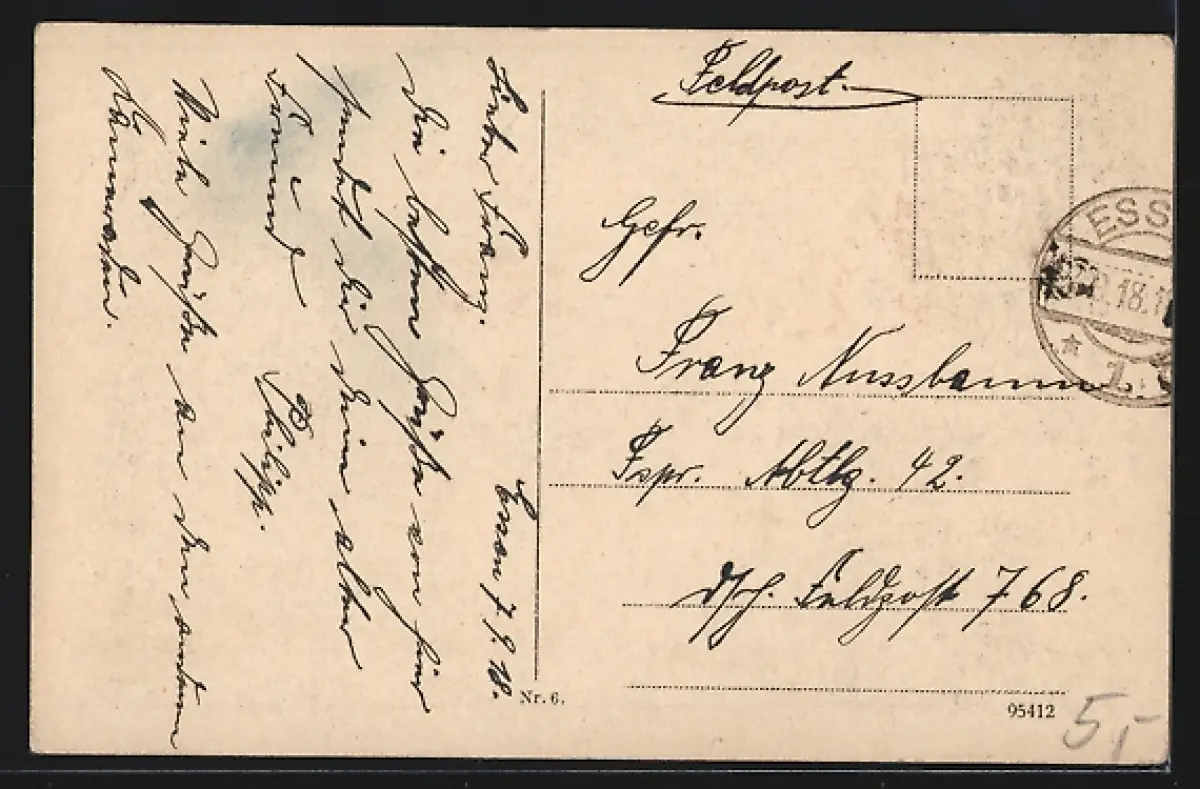 Essen 7.9.18.
Lieber Franz.
Die besten Grüße von hier
sendet Dir Dein alter
Freund
Philipp.
Viele Grüße an den andern
Kameraden.
Feldpost.
Gefr.
Franz Nussbaum
Fspr. Abtlg. 42.
dtsch. Feldpost 768.
ESS
.18.
1.
Nr. 6.
95412
5,-